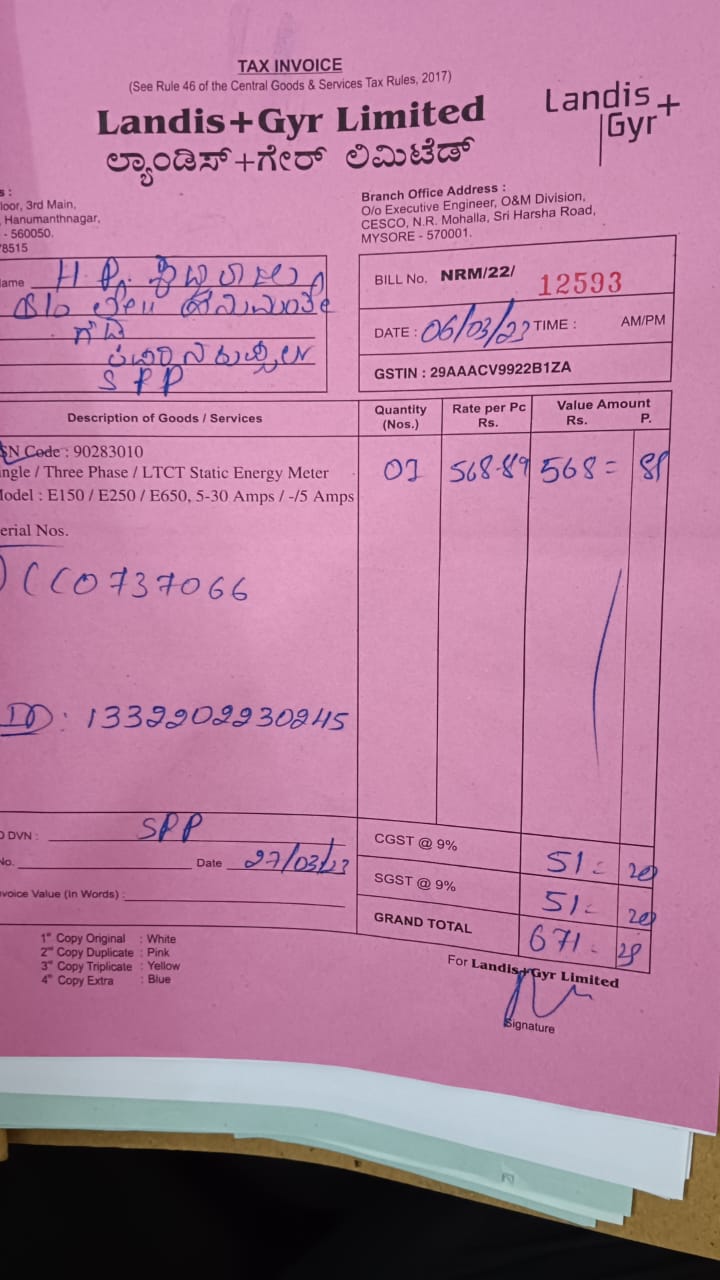 TAX INVOICE
(See Rule 46 of the Central Goods & Services Tax Rules, 2017)
Landis+Gyr Limited
ಲ್ಯಾಂಡಿಸ್+ಗೇರ್ ಲಿಮಿಟೆಡ್
Landis+
Gyr
s :
loor, 3rd Main,
Hanumanthnagar,
- 560050.
78515
Branch Office Address :
O/o Executive Engineer, O&M Division,
CESCO, N.R. Mohalla, Sri Harsha Road,
MYSORE - 570001.
ame H.P.
ಗೌಡ
SPP
BILL No. NRM/22/ 12593
DATE : 06/03/23 TIME : AM/PM
GSTIN : 29AAACV9922B1ZA
Description of Goods / Services Quantity (Nos.) Rate per Pc Rs. Value Amount Rs. P.
SN Code : 90283010
ngle / Three Phase / LTCT Static Energy Meter 01 568-89 568=
odel : E150 / E250 / E650, 5-30 Amps / -/5 Amps
erial Nos.
) CC0737066
ID: 1332202230245
O DVN : SPP
No. Date 27/03/23
voice Value (In Words) :
CGST @ 9% 51= 20
SGST @ 9% 51= 20
GRAND TOTAL 671=
1st Copy Original : White
2nd Copy Duplicate : Pink
3rd Copy Triplicate : Yellow
4th Copy Extra : Blue
For Landis+Gyr Limited
Signature